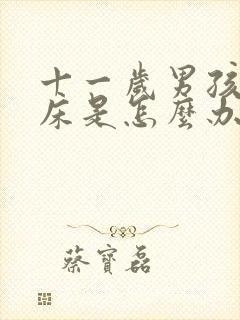 十一歲男孩
床是怎麼办
蔡寶磊